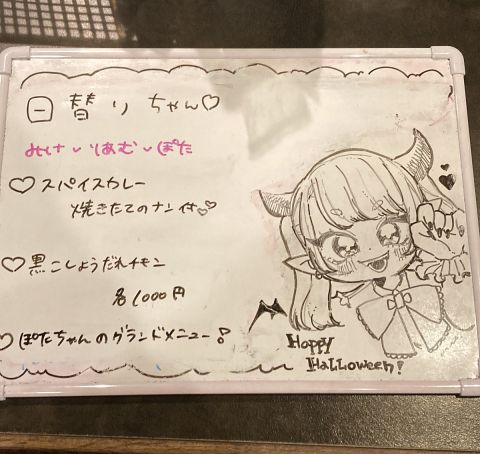 日替りちゃん♡
みけ・りあむ・ぽた
♡スパイスカレー
焼きたてのナン付♡
♡黒こしょうだれチキン
各1000円
♡ぽたちゃんのグランドメニュー!
Happy
Halloween!